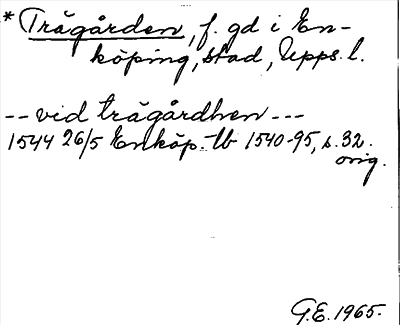 * Trägården, f. gd i En-
köping, stad, Upps. l.
-- vid trägårdhen ---
1544 26/5 Enköp. tb 1540-95, s. 32.
orig.
G.E. 1965.